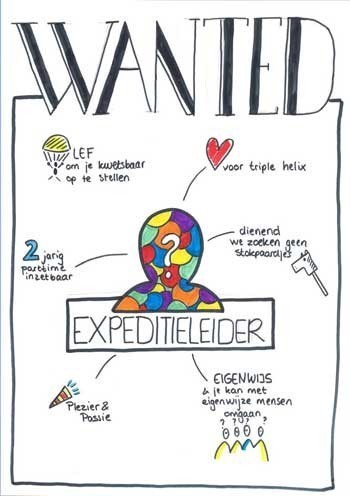 WANTED
LEF
om je kwetsbaar
op te stellen
voor triple helix
dienend
we zoeken geen
stokpaardjes
2 jarig
parttime
inzetbaar
?
EXPEDITIELEIDER
Plezier &
Passie
EIGENWIJS
& je kan met
eigenwijze mensen
omgaan
? ? ? ?